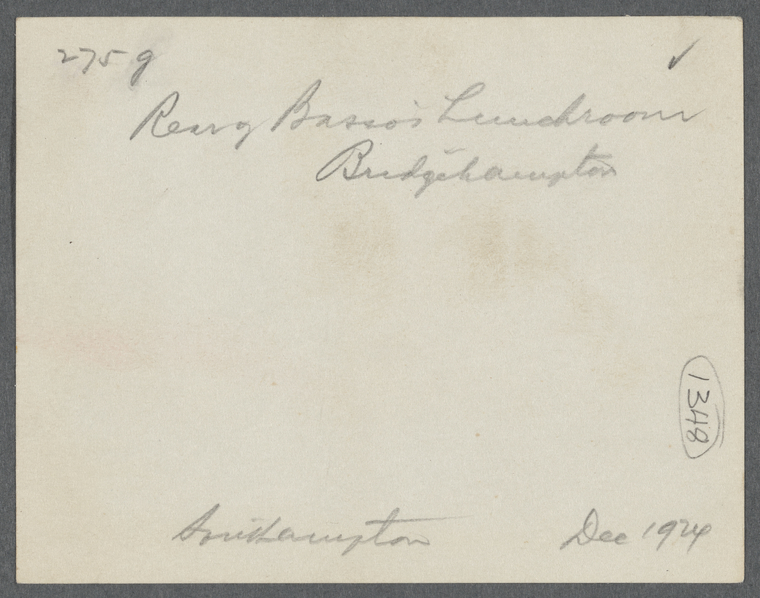 275g ✓
Rear of Basso's Lunchroom
Bridgehampton
1348
Southampton Dec 1924